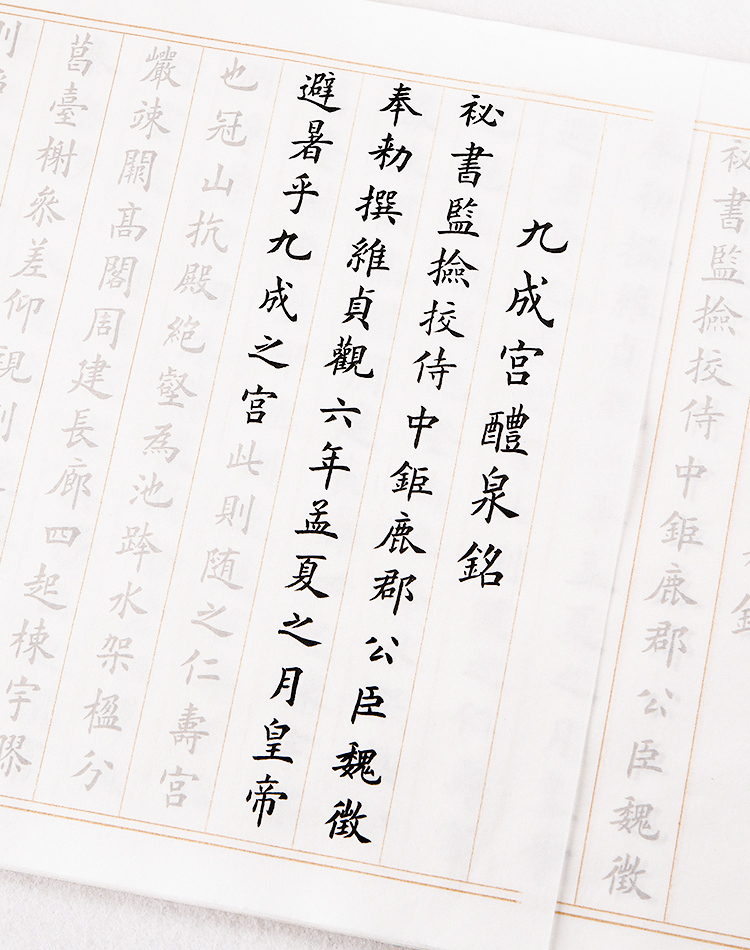 祕書監撿挍侍中鉅鹿郡公臣魏徵
九成宮醴泉銘
祕書監撿挍侍中鉅鹿郡公臣魏徵
奉勑撰維貞觀六年孟夏之月皇帝
避暑乎九成之宮此則随之仁壽宮
也冠山抗殿絕壑為池跨水架楹分
巖竦闕高閣周建長廊四起棟宇膠
葛臺榭參差仰視